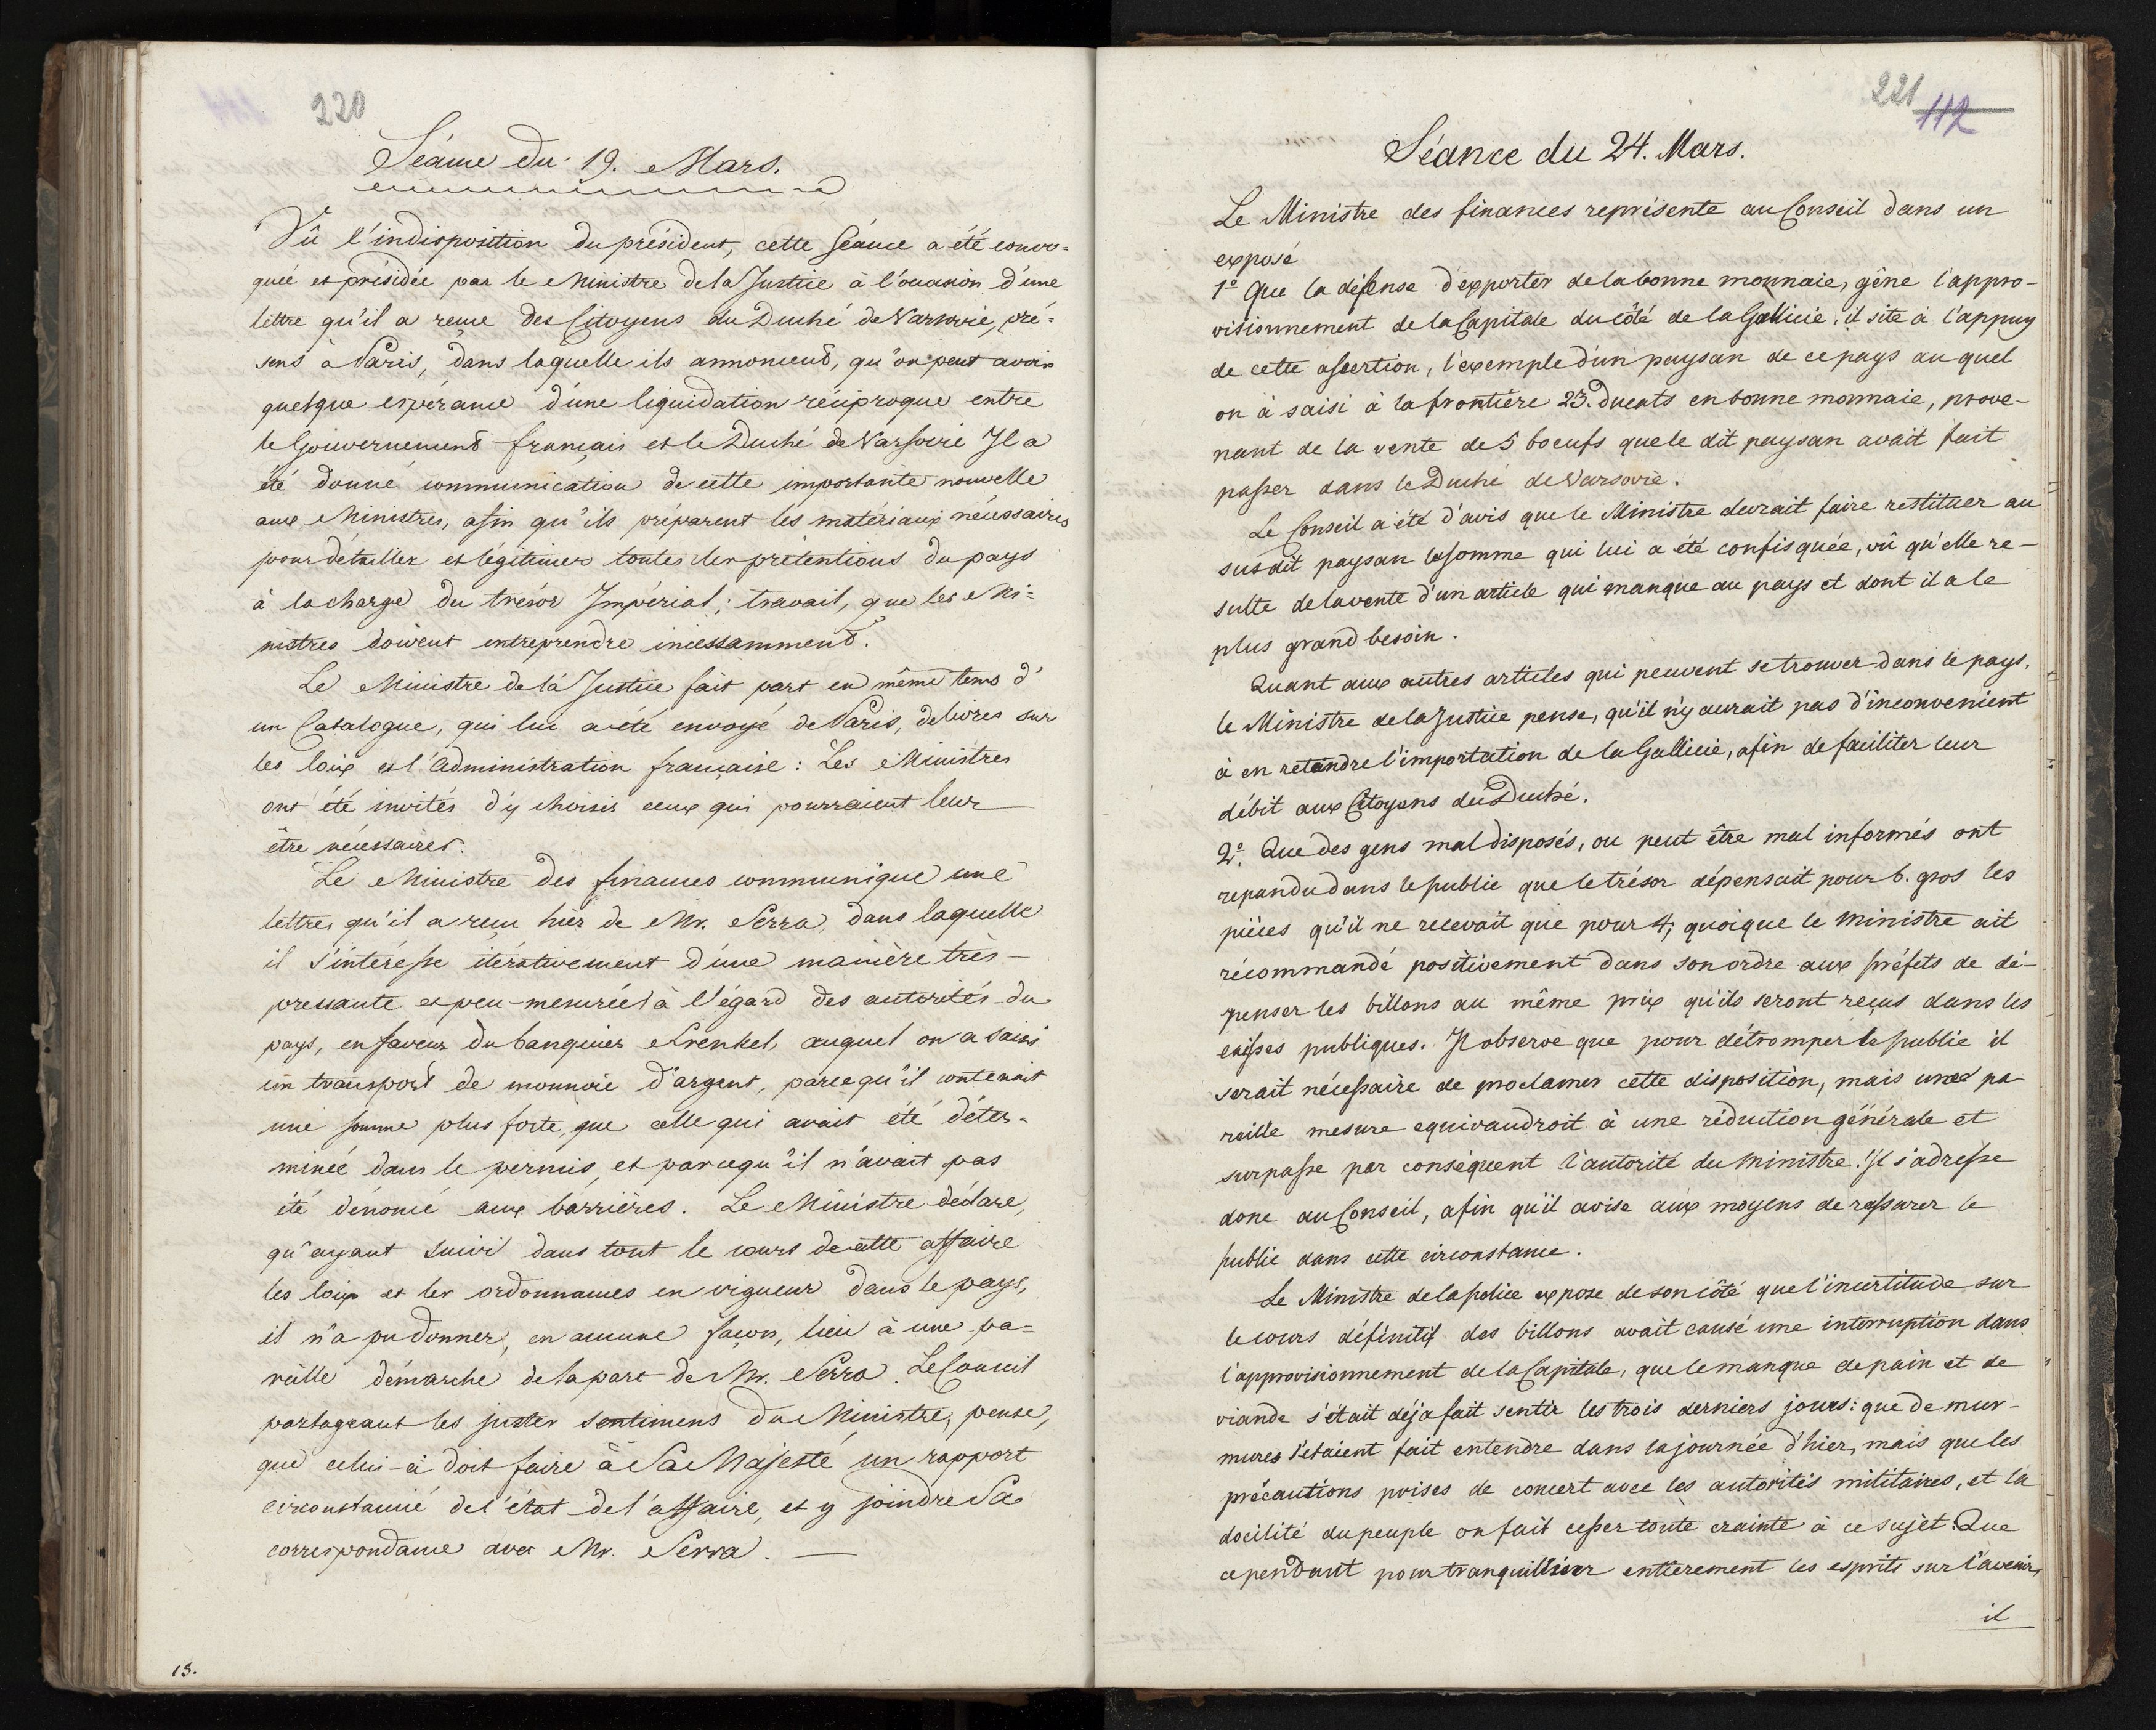 220
Séance du 19. Mars.
Vû l'indisposition du président, cette séance a été convo=
quée et présidée par le Ministre de la Justice à l'occasion d'une
lettre qu'il a reçue des Citoyens du Duché de Varsovie, pré=
sens à Paris, dans laquelle ils annoncent, qu'on peut avoir
quelque espérance d'une liquidation réciproque entre
le Gouvernement français et le Duché de Varsovie Il a
été donné communication de cette importante nouvelle
aux Ministres, afin qu'ils préparent les matériaux nécessaires
pour détailler et légitimer toutes les prétentions du pays
à la charge du trésor Impérial; travail, que les Mi=
nistres doivent entreprendre incessamment.
Le Ministre de la Justice fait part en même tems d'
un Catalogue, qui lui a été envoyé de Paris, de livres sur
les loix et l'administration française: Les Ministres
ont été invités d'y choisir ceux qui pourraient leur
être nécessaires.
Le Ministre des finances communique une
lettre, qu'il a reçu hier de Mr. Serra, dans laquelle
il s'intéresse itérativement d'une manière très-
pressante et peu-mesurée à l'égard des autorités du
pays, en faveur du banquier Frenkel, auquel on a saisi
un transport de monnoie d'argent, parcequ'il contenait
une somme plus forte, que celle qui avait été déter-
minée dans le permis, et parcequ'il n'avait pas
été dénoncé aux barrières. Le Ministre déclare,
qu'ayant suivi dans tout le cours de cette affaire
les loix et les ordonnances en vigueur dans le pays,
il n'a pu donner, en aucune façon, lieu à une pa=
reille démarche de la part de Mr. Serra. Le Conseil
partageant les justes sentimens du Ministre, pense,
que celui-ci doit faire à Sa Majesté un rapport
circonstancié de l'état de l'affaire, et y joindre Sa
correspondance avec Mr. Serra. —
15.
221 112
Séance du 24. Mars.
Le Ministre des finances représente au Conseil dans un
exposé
1º Que la défense d'exporter de la bonne monnaie, gêne l'appro-
visionnement de la Capitale du côté de la Gallicie, il site à l'appuy
de cette assertion, l'exemple d'un paysan de ce pays au quel
on à saisi à la frontière 23. ducats en bonne monnaie, prove-
nant de la vente de 5 boeufs que le dit paysan avait fait
passer dans le Duché de Varsovie.
Le Conseil a été d'avis que le Ministre devrait faire restituer au
susdit paysan la somme qui lui a été confisquée, vû qu'elle re-
sulte de la vente d'un article qui manque au pays et dont il a le
plus grand besoin.
Quant aux autres articles qui peuvent se trouver dans le pays,
le Ministre de la Justice pense, qu'il n'y aurait pas d'inconvenient
à en retendre l'importation de la Gallicie, afin de faciliter leur
débit aux Citoyens du Duché.
2º. Que des gens mal disposés, ou peut être mal informés ont
repandu dans le public que le trésor dépensait pour 6. gros les
pièces qu'il ne recevait que pour 4; quoique le ministre ait
récommandé positivement dans son ordre aux préfets de dé-
penser les billons au même prix qu'ils seront reçus dans les
caisses publiques. Il observe que pour détromper le public il
serait nécessaire de proclamer cette disposition, mais une pa
reille mesure equivaudroit à une réduction générale et
surpasse par conséquent l'autorité du ministre. Il s'adresse
donc au Conseil, afin qu'il avise aux moyens de rassurer le
public dans cette circonstance.
Le Ministre de la police expose de son côté que l'incertitude sur
le cours définitif des billons avait causé une interruption dans
l'approvisionnement de la Capitale, que le manque de pain et de
viande s'était déja fait sentir les trois derniers jours: que de mur-
mures s'étaient fait entendre dans la journée d'hier, mais que les
précautions prises de concert avec les autorités militaires, et la
docilité du peuple on fait cesser toute crainte à ce sujet. Que
cependant pour tranquilliser entierement les esprits sur l'avenir,
il